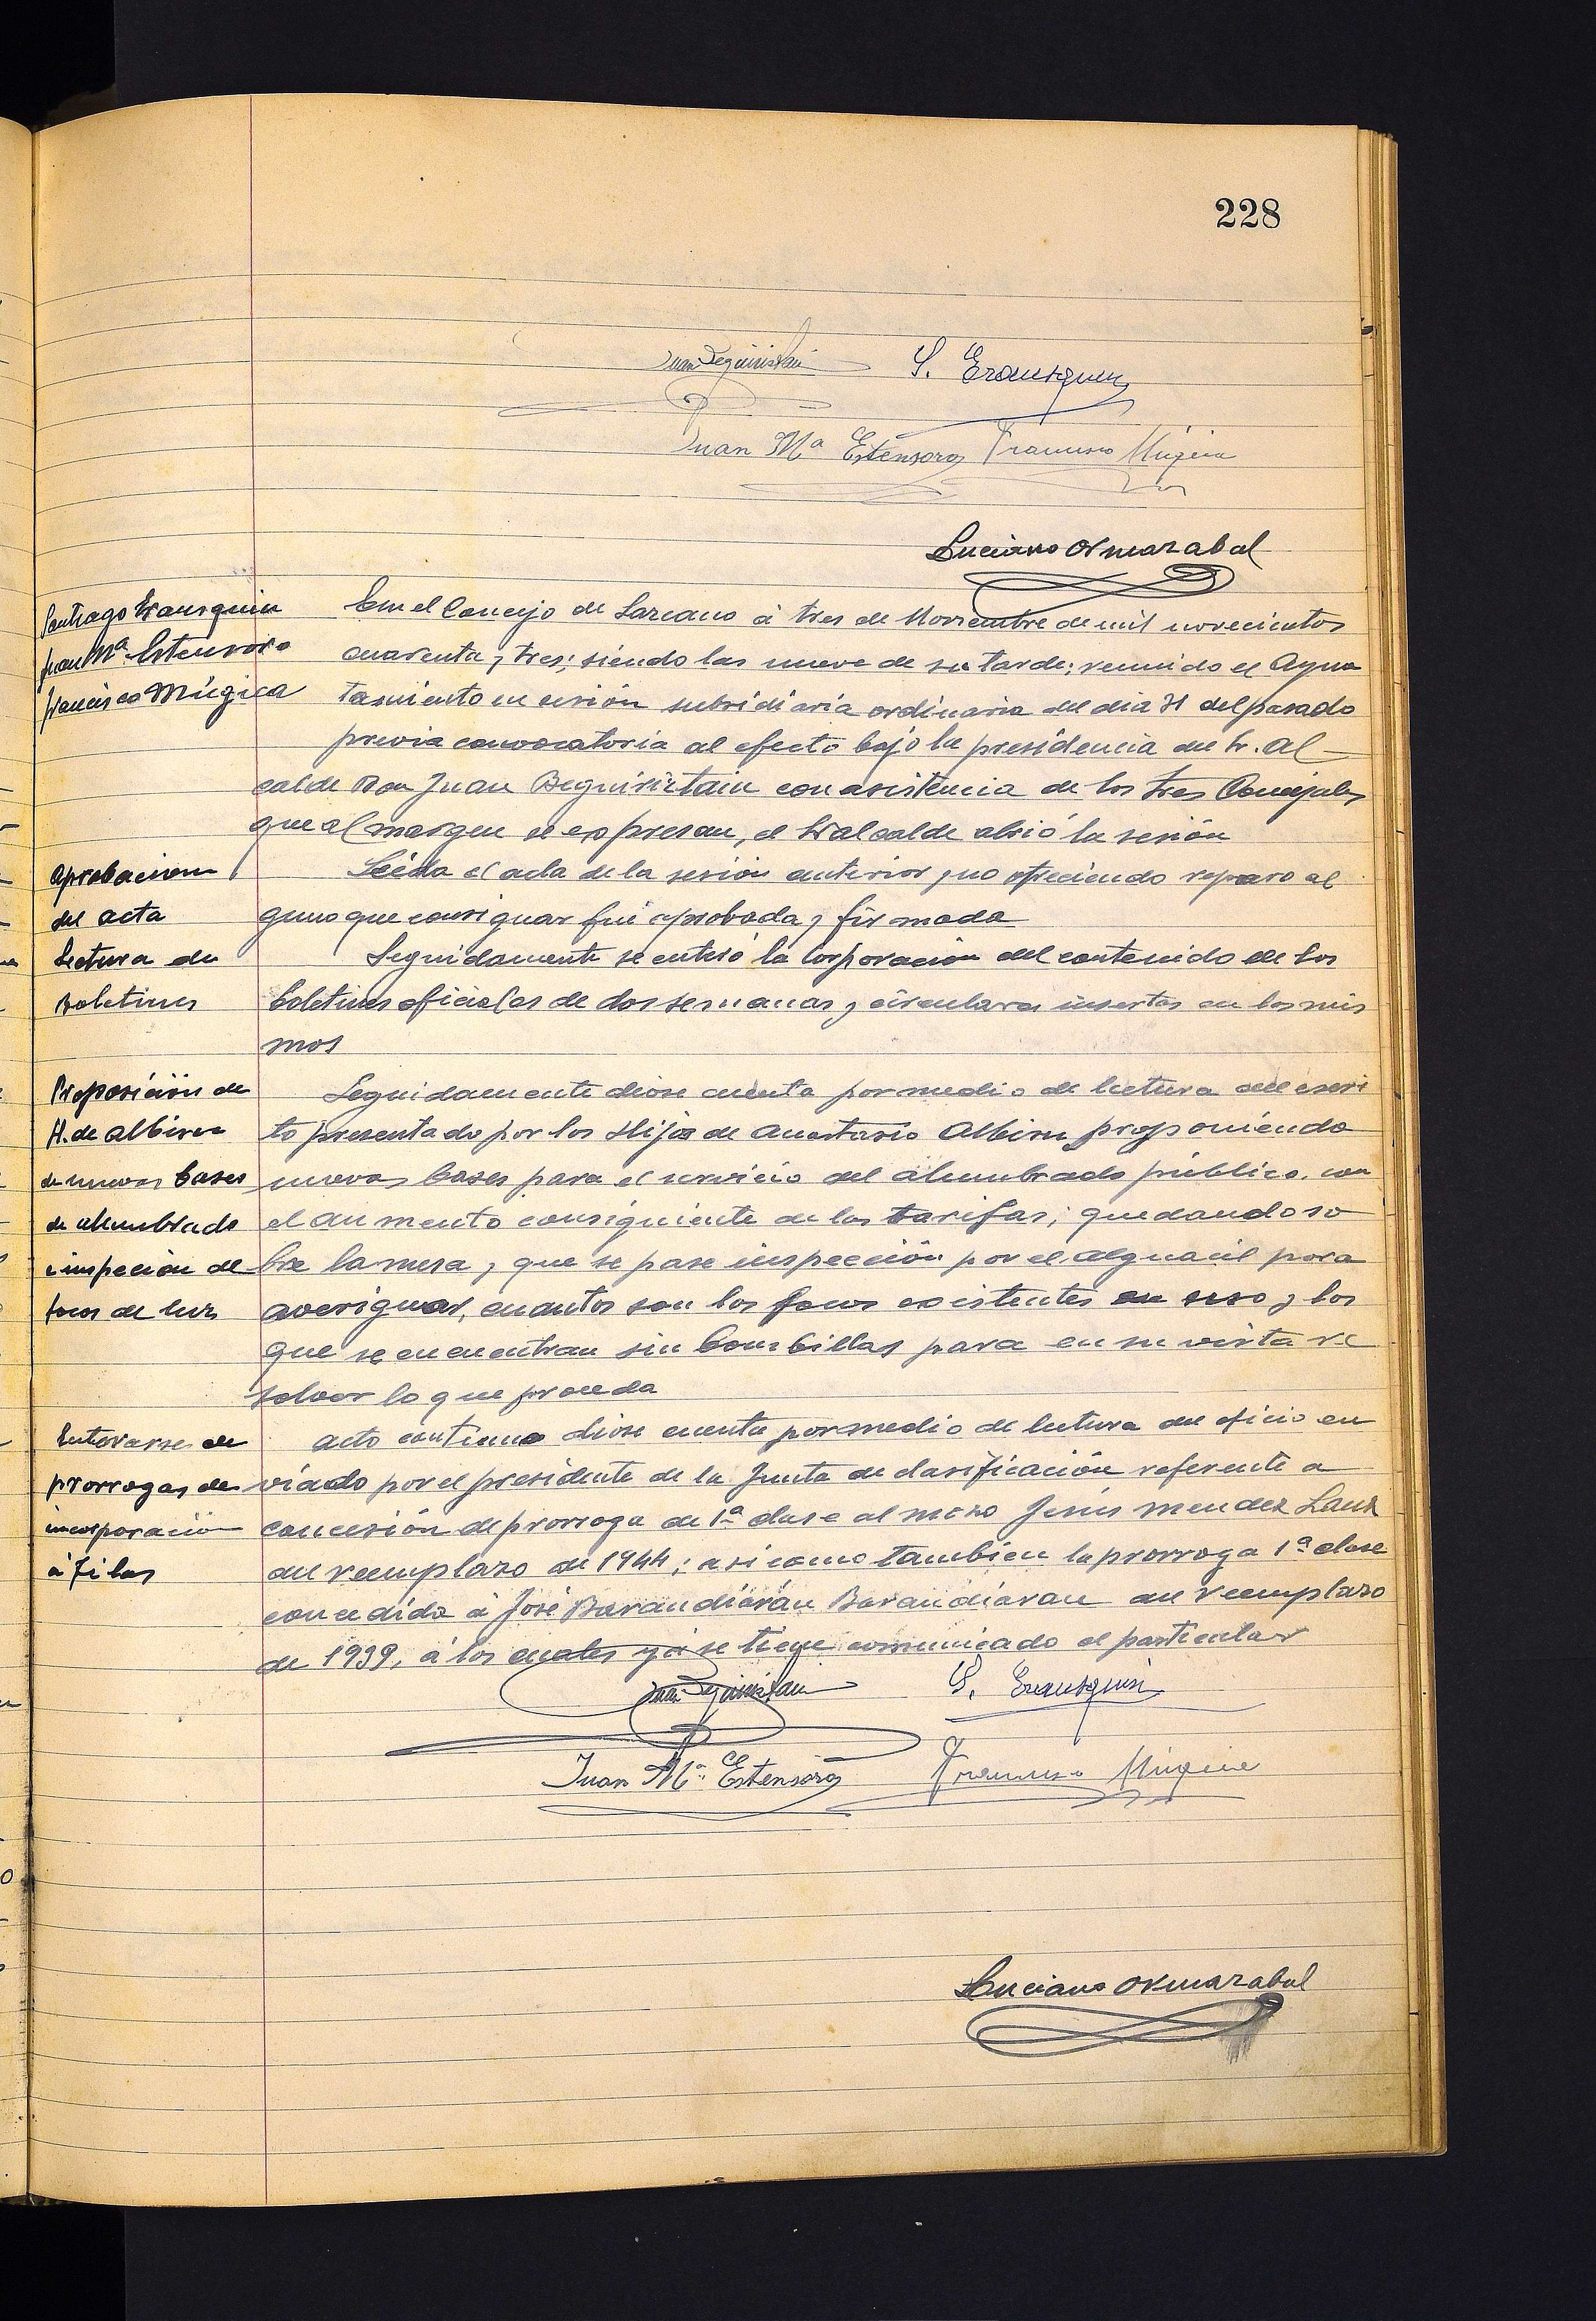 228
Juan Beguiristain S. Erausquin
Juan Mª Estensoro Francisco Múgica
Luciano Ormazabal
Santiago Erausquin
Juan Mª Estensoro
Francisco Múgica
En el Concejo de Lazcano á tres de Noviembre de mil novecientos
cuarenta y tres; siendo las nueve de su tarde; reunido el Ayun
tamiento en sesión subsidiaria ordinaria del dia 31 del pasado
previa convocatoria al efecto bajo la presidencia del Sr. Al-
calde Don Juan Beguiristain con asistencia de los tres Concejales
que al margen se expresan, el Sr Alcalde abrió la sesión
Aprobacion
del acta
Leida el acta de la sesión anterior y no ofreciendo reparo al
guno que consignar fué aprobada y firmada
Lectura de
Boletines
Seguidamente se enteró la Corporación del contenido de los
boletines oficiales de dos semanas y circulares insertas en los mis
mos
Proposición de
H. de Albisu
de nuevas bases
de alumbrado
e inspeción de
focos de luz
Seguidamente diose cuenta por medio de lectura del escri
to presentado por los Hijos de Anastasio Albisu proponiendo
nuevas bases para el servicio del alumbrado público, con
el aumento consiguiente de las tarifas; quedando so
bre la mesa y que se pase inspección por el alguacil para
averiguar, cuantos son los focos existentes en uso y los
que se encuentran sin bombillas para en su vista re
solver lo que proceda
Enterarse de
prorrogas de
incorporación
á filas
Acto continuo diose cuenta por medio de lectura del oficio en
viado por el presidente de la Junta de clasificación referente a
concesión de prorroga de 1ª clase al mozo Jesús Mendez Lanz
del reemplazo de 1944; asi como tambien la prorroga 1ª clase
concedida á José Barandiarán Barandiaran del reemplazo
de 1939, á los cuales ya se tiene comunicado el particular
Juan Beguiristain S. Erausquin
Juan Mª Estensoro Francisco Múgica
Luciano Ormazabal